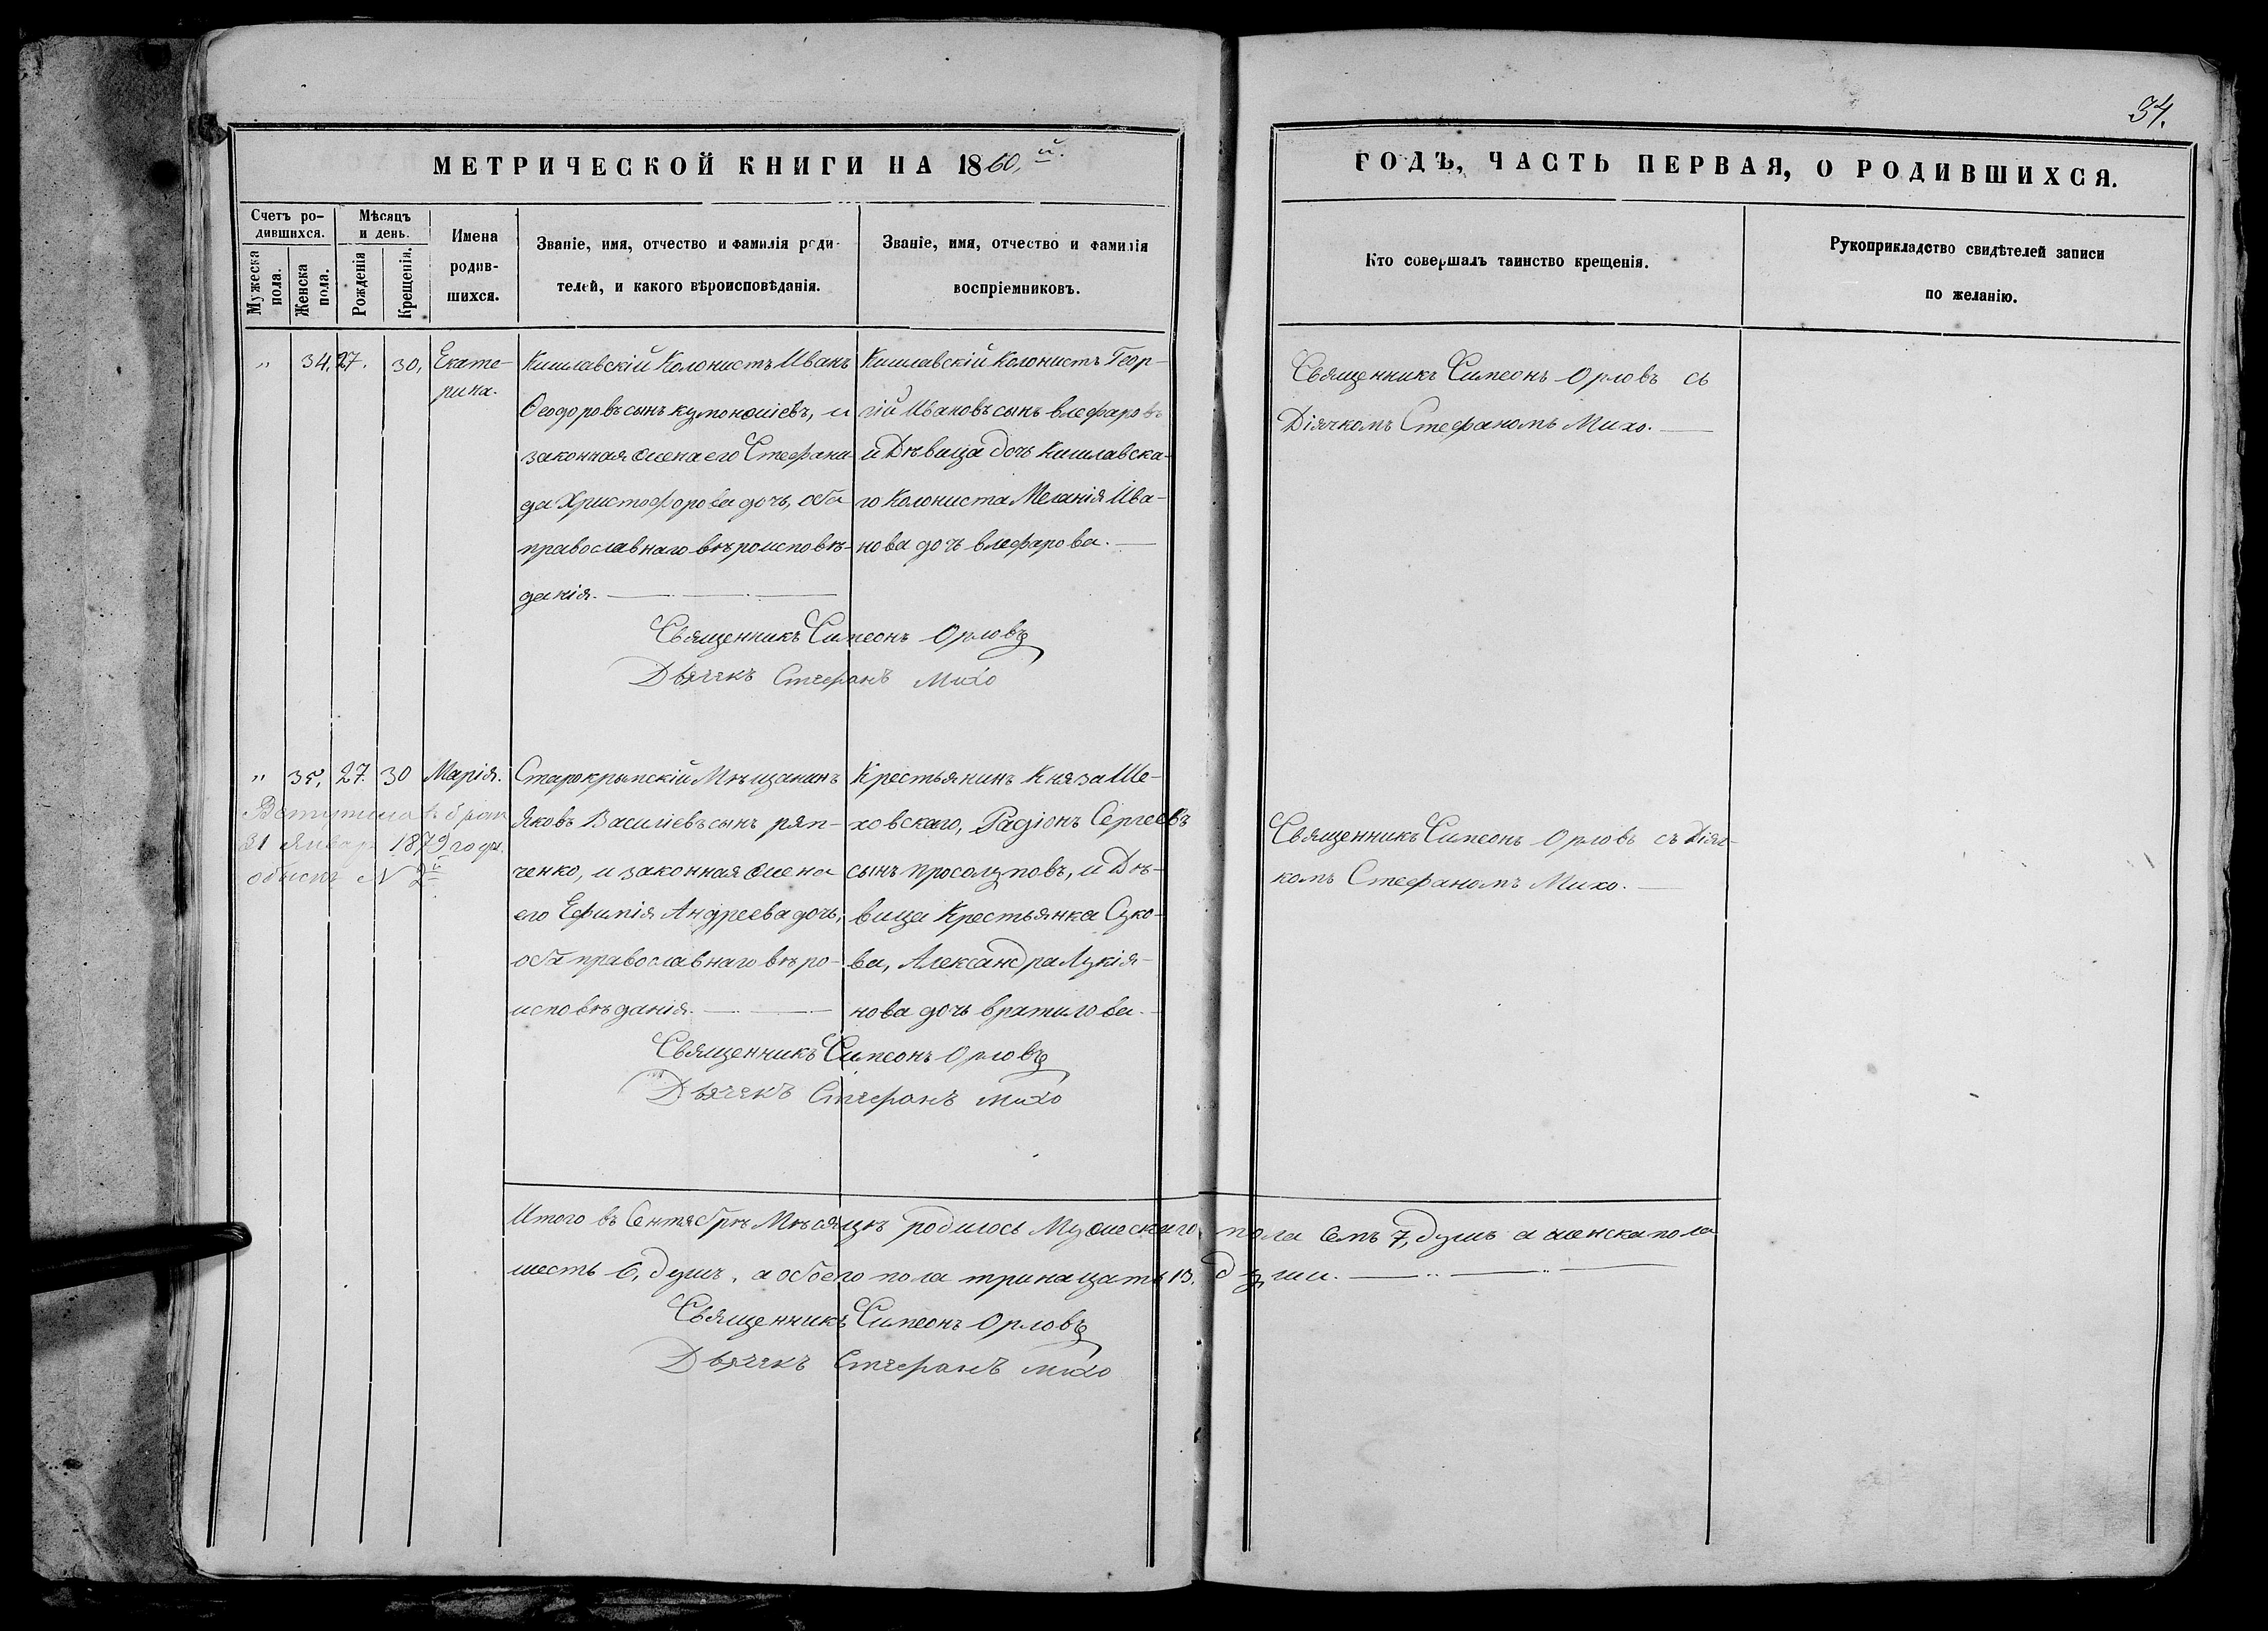 34.
МЕТРИЧЕСКОЙ КНИГИ НА 1860,й.
ГОДЪ, ЧАСТЬ ПЕРВАЯ, О РОДИВШИХСЯ.
Счетъ ро-
дившихся.
Мужеска пола.
Женска пола.
Мѣсяцъ и день.
Рожденія
Крещенія.
Имена родив-
шихся.
Званіе, имя, отчество и фамилія роди-
телей, и какого вѣроисповѣданія.
Званіе, имя, отчество и фамилія
воспріемниковъ.
Кто совершалъ таинство крещенія.
Рукоприкладство свидѣтелей записи
по желанію.
„ 34, 27. 30, Екате-
рина.
Кишлавскій Колонистъ Иванъ
Ѳеодоровъ сынъ кумоножіевъ, и
законная жена его Стефани-
да Христофорова дочь, оба
православнаго вѣроисповѣ-
данія.
Кишлавскій Колонистъ Геор-
гій Ивановъ сынъ влефаровъ
и Дѣвица дочь Кишлавска-
го Колониста Меланія Ива-
нова дочь влефарова.
Священникъ Симеонъ Орловъ съ
Діячкомъ Стефаномъ Михо.
Священникъ Симеонъ Орловъ
Дьячекъ Стефанъ Михо
„ 35, 27. 30 Марія.
Вступила въ бракъ
31 Января 1879 года
обыскъ N 2й
Старокрымскій Мѣщанинъ
Яковъ Василіевъ сынъ ряп-
ченко, и законная жена
его Ефимія Андреева дочь,
оба православнаго вѣро-
исповѣданія.
Крестьянинъ Князя Ше-
ховскаго, Радіонъ Сергеевъ
сынъ просолуповъ, и Дѣ-
вица Крестьянка Суко-
ва, Александра Лукія-
нова дочь вратилова.
Священникъ Симеонъ Орловъ съ Діяч-
комъ Стефаномъ Михо.
Священникъ Симеонъ Орловъ
Дьячекъ Стефанъ михо
Итого въ Сентябрѣ Мѣсяцѣ родилось Мужескаго пола семь 7, душъ а женска пола
шесть 6, душъ, а обоего пола тринацать 13. души.
Священникъ Симеонъ Орловъ
Дьячекъ Стефанъ михо